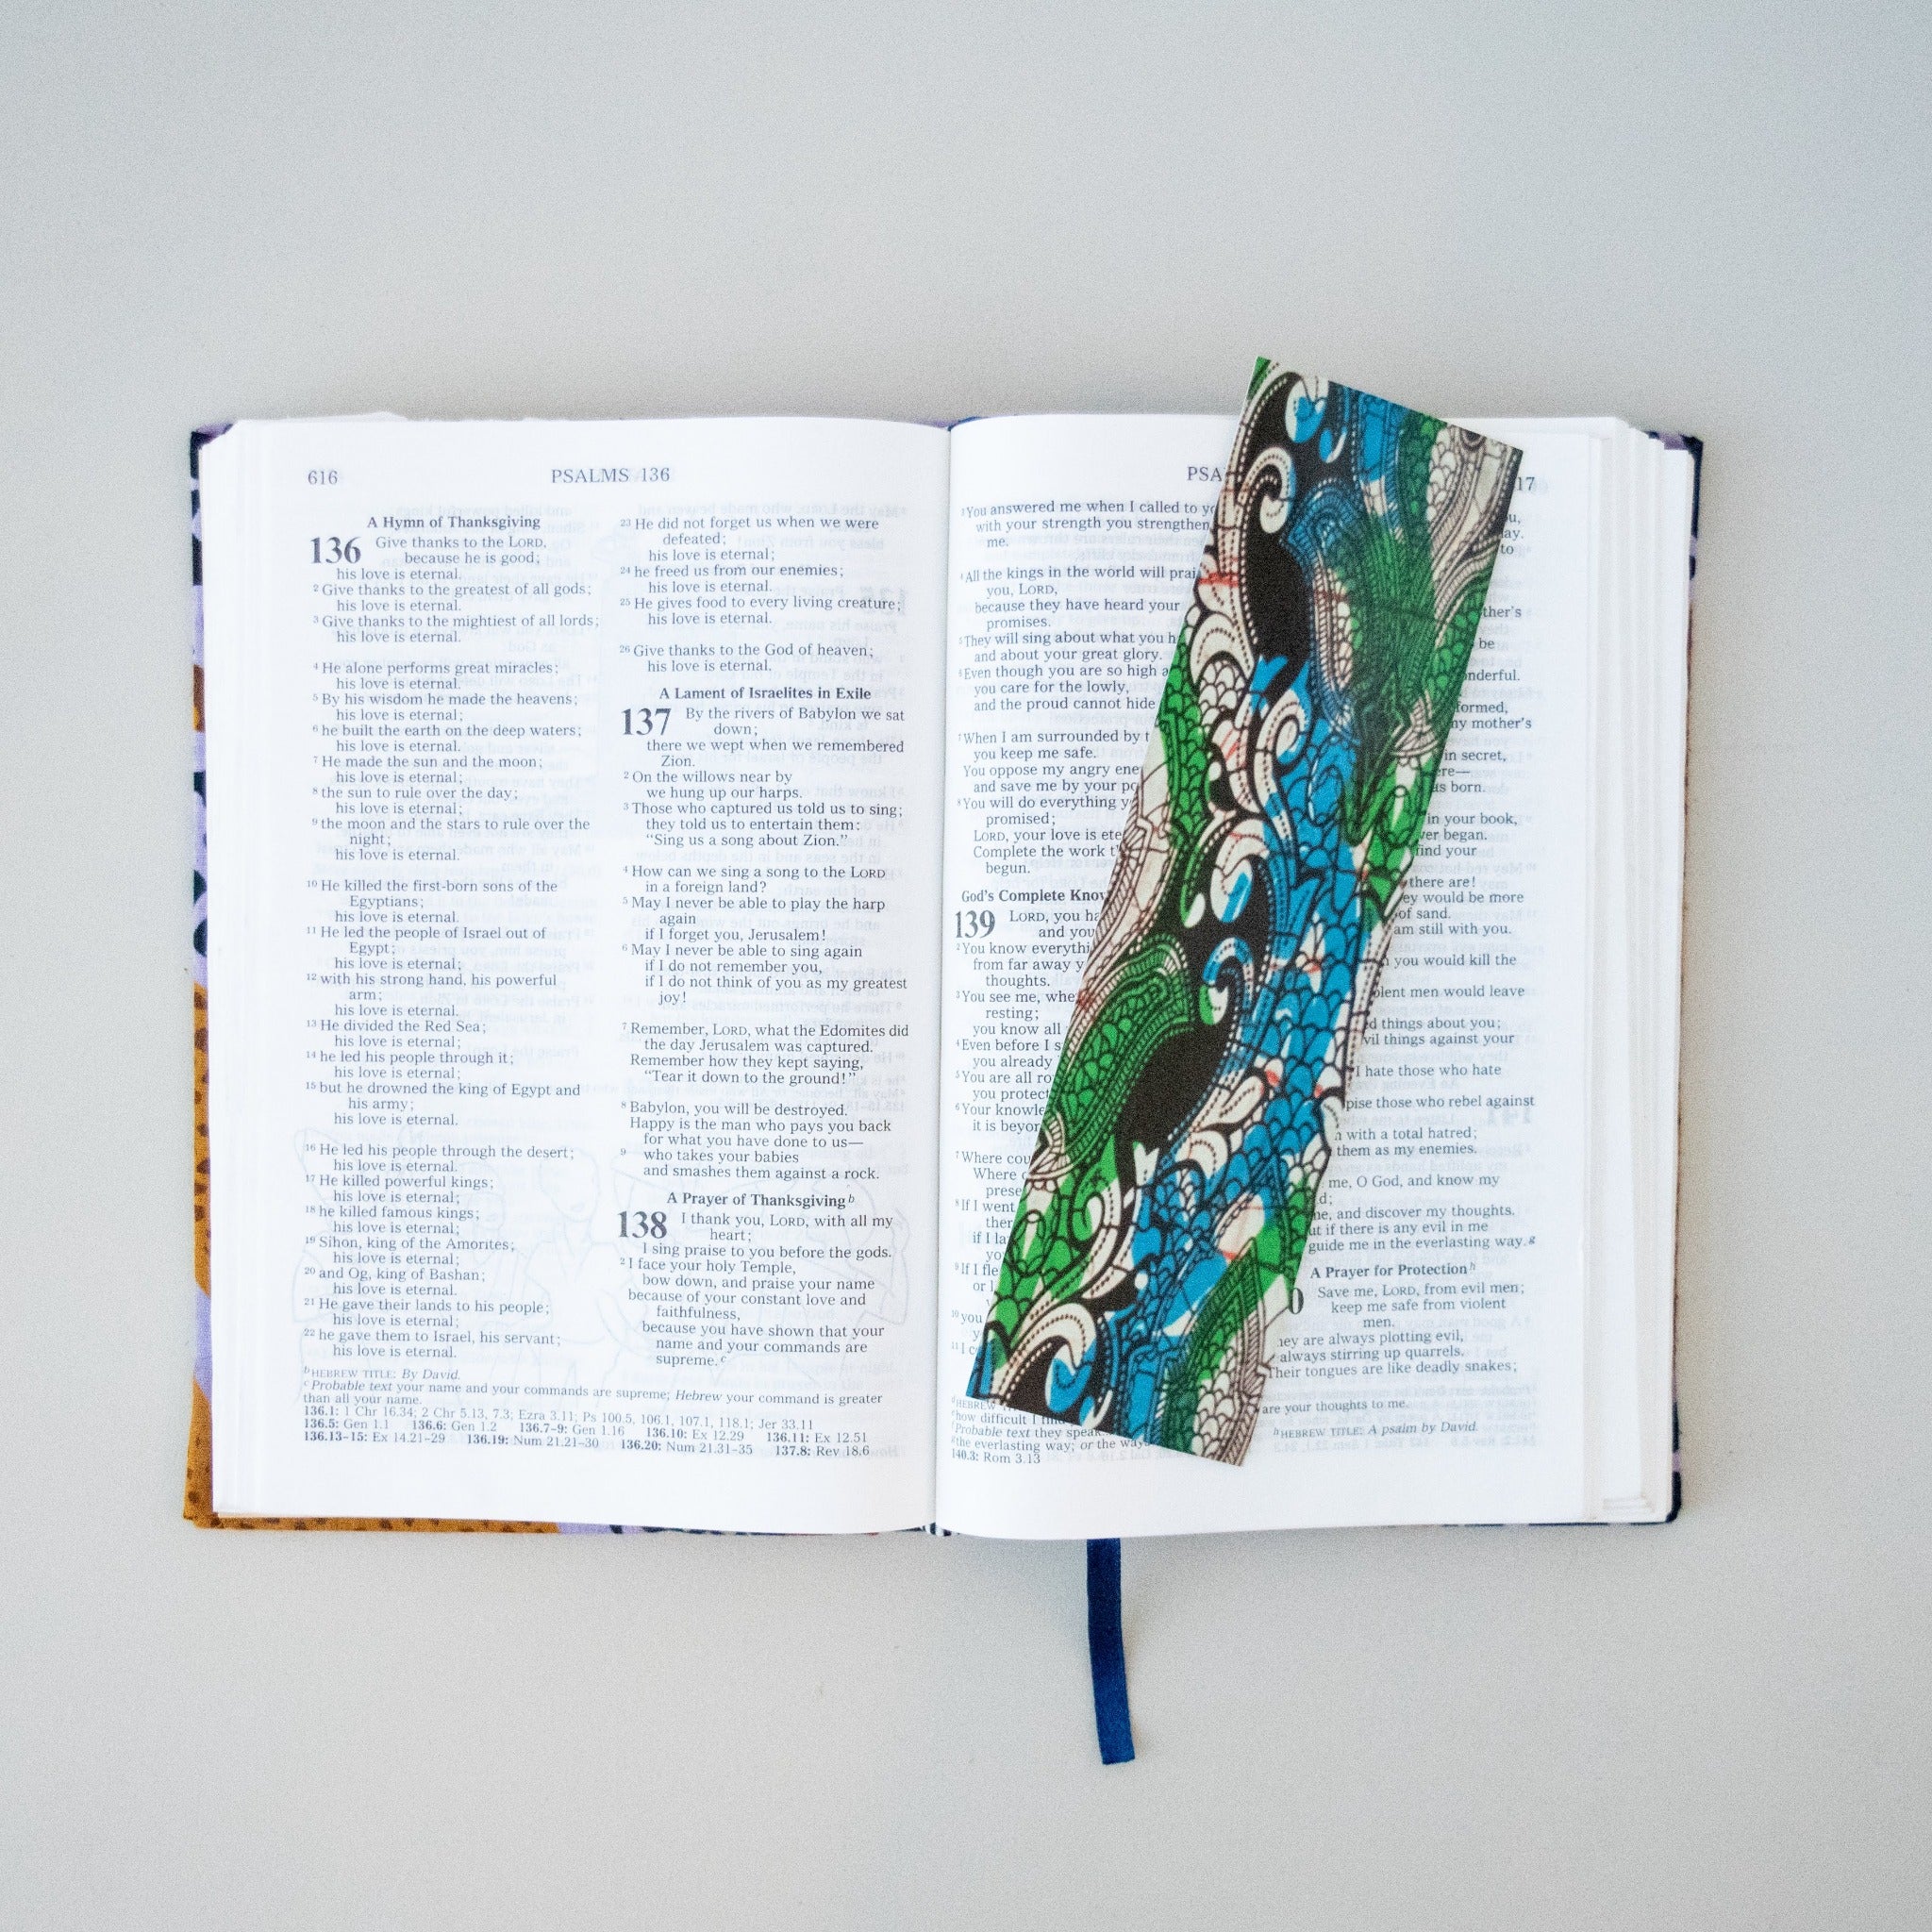 616
PSALMS 136
A Hymn of Thanksgiving
136 Give thanks to the LORD,
because he is good;
his love is eternal.
2 Give thanks to the greatest of all gods;
his love is eternal.
3 Give thanks to the mightiest of all lords;
his love is eternal.
4 He alone performs great miracles;
his love is eternal.
5 By his wisdom he made the heavens;
his love is eternal;
6 he built the earth on the deep waters;
his love is eternal.
7 He made the sun and the moon;
his love is eternal;
8 the sun to rule over the day;
his love is eternal;
9 the moon and the stars to rule over the
night;
his love is eternal.
10 He killed the first-born sons of the
Egyptians;
his love is eternal.
11 He led the people of Israel out of
Egypt;
his love is eternal;
12 with his strong hand, his powerful
arm;
his love is eternal.
13 He divided the Red Sea;
his love is eternal;
14 he led his people through it;
his love is eternal;
15 but he drowned the king of Egypt and
his army;
his love is eternal.
16 He led his people through the desert;
his love is eternal.
17 He killed powerful kings;
his love is eternal;
18 he killed famous kings;
his love is eternal;
19 Sihon, king of the Amorites;
his love is eternal;
20 and Og, king of Bashan;
his love is eternal.
21 He gave their lands to his people;
his love is eternal;
22 he gave them to Israel, his servant;
his love is eternal.
23 He did not forget us when we were
defeated;
his love is eternal;
24 he freed us from our enemies;
his love is eternal.
25 He gives food to every living creature;
his love is eternal.
26 Give thanks to the God of heaven;
his love is eternal.
A Lament of Israelites in Exile
137 By the rivers of Babylon we sat
down;
there we wept when we remembered
Zion.
2 On the willows near by
we hung up our harps.
3 Those who captured us told us to sing;
they told us to entertain them:
“Sing us a song about Zion.”
4 How can we sing a song to the LORD
in a foreign land?
5 May I never be able to play the harp
again
if I forget you, Jerusalem!
6 May I never be able to sing again
if I do not remember you,
if I do not think of you as my greatest
joy!
7 Remember, LORD, what the Edomites did
the day Jerusalem was captured.
Remember how they kept saying,
“Tear it down to the ground!”
8 Babylon, you will be destroyed.
Happy is the man who pays you back
for what you have done to us—
9 who takes your babies
and smashes them against a rock.
A Prayer of Thanksgiving b
138 I thank you, LORD, with all my
heart;
I sing praise to you before the gods.
2 I face your holy Temple,
bow down, and praise your name
because of your constant love and
faithfulness,
because you have shown that your
name and your commands are
supreme. c
b HEBREW TITLE: By David.
c Probable text your name and your commands are supreme; Hebrew your command is greater
than all your name.
136.1: 1 Chr 16.34; 2 Chr 5.13, 7.3; Ezra 3.11; Ps 100.5, 106.1, 107.1, 118.1; Jer 33.11
136.5: Gen 1.1 136.6: Gen 1.2 136.7-9: Gen 1.16 136.10: Ex 12.29 136.11: Ex 12.51
136.13-15: Ex 14.21-29 136.19: Num 21.21-30 136.20: Num 21.31-35 137.8: Rev 18.6
PSA
17
3 You answered me when I called to
with your strength you strengthen
me.
4 All the kings in the world will
you, LORD,
because they have heard your
promises.
5 They will sing about what you
and about your great glory.
6 Even though you are so high
you care for the lowly,
and the proud cannot hide
7 When I am surrounded by
you keep me safe.
You oppose my angry
and save me by your
8 You will do everything
promised;
LORD, your love is
Complete the work
begun.
God's Complete
139 LORD, you
and you
2 You know
from far away
thoughts.
3 You see me,
resting;
you know all
4 Even before I
you already
5 You are all
you protect
6 Your
it is
7 Where
Where
8 If I went
if I
9 If I
or
10 you
11 I
how difficult I
Probable text they
the everlasting way; or the
140.3: Rom 3.13
to
be
formed,
my mother's
in secret,
born.
in your book,
began.
find your
there are!
would be more
of sand.
am still with you.
you would kill the
men would leave
things about you;
things against your
I hate those who hate
those who rebel against
with a total hatred;
them as my enemies.
me, O God, and know my
and discover my thoughts.
if there is any evil in me
guide me in the everlasting way. g
A Prayer for Protection h
0 Save me, LORD, from evil men;
keep me safe from violent
men.
are always plotting evil,
always stirring up quarrels.
Their tongues are like deadly snakes;
are your thoughts to me.
h HEBREW TITLE: A psalm by David.